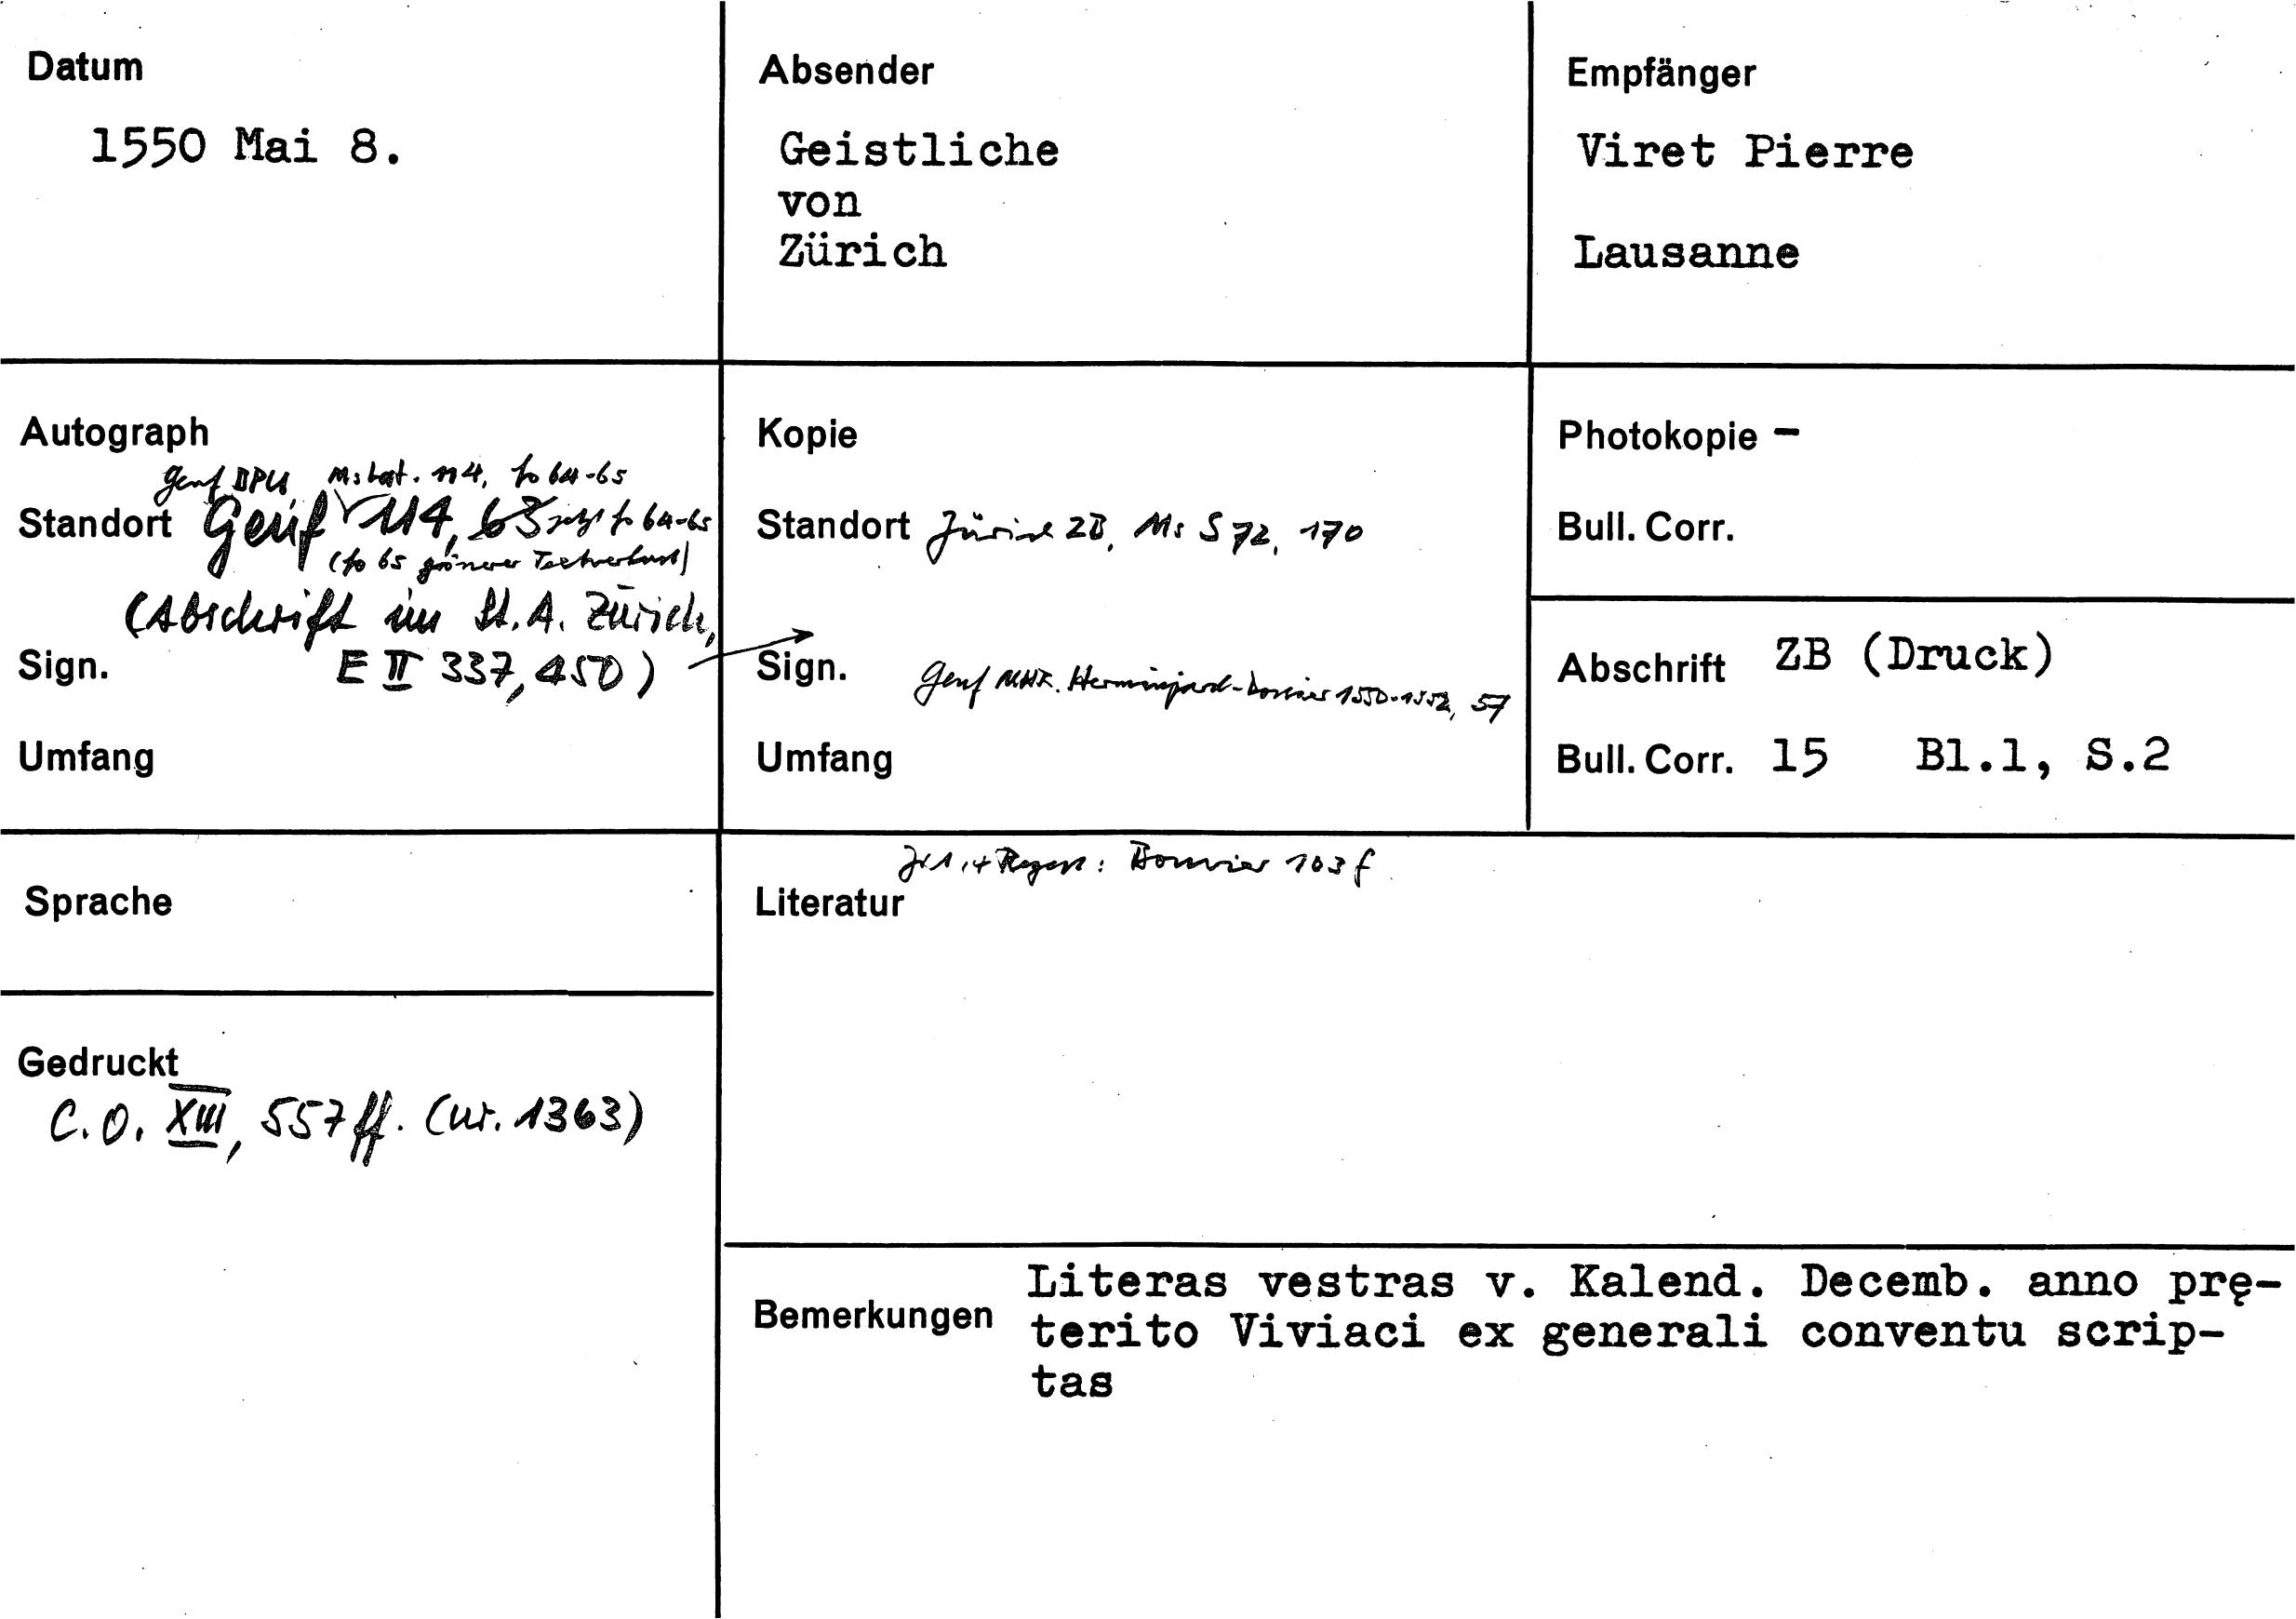 Datum
1550 Mai 8.
Absender
Geistliche
von
Zürich
Empfänger
Viret Pierre
Lausanne
Autograph
Genf BPU, Ms lat. 114, fo 64-65
Standort Genf 114, 63 jetzt fo 64-65
(fo 65 grösserer Textverlust)
(Abschrift im St. A. Zürich,
Sign. E II 337, 450)
Umfang
Kopie
Standort Zürich ZB, Ms S 72, 170
Sign. Genf MHR. Herminjard-Dossier 1550-1552, 57
Umfang
Photokopie -
Bull. Corr.
Abschrift ZB (Druck)
Bull. Corr. 15 Bl.1, S.2
Sprache
Gedruckt
C.O. XIII, 557ff. (nr. 1363)
Regest: Bouvier 103 f
Literatur
Bemerkungen
Literas vestras v. Kalend. Decemb. anno prę-
terito Viviaci ex generali conventu scrip-
tas